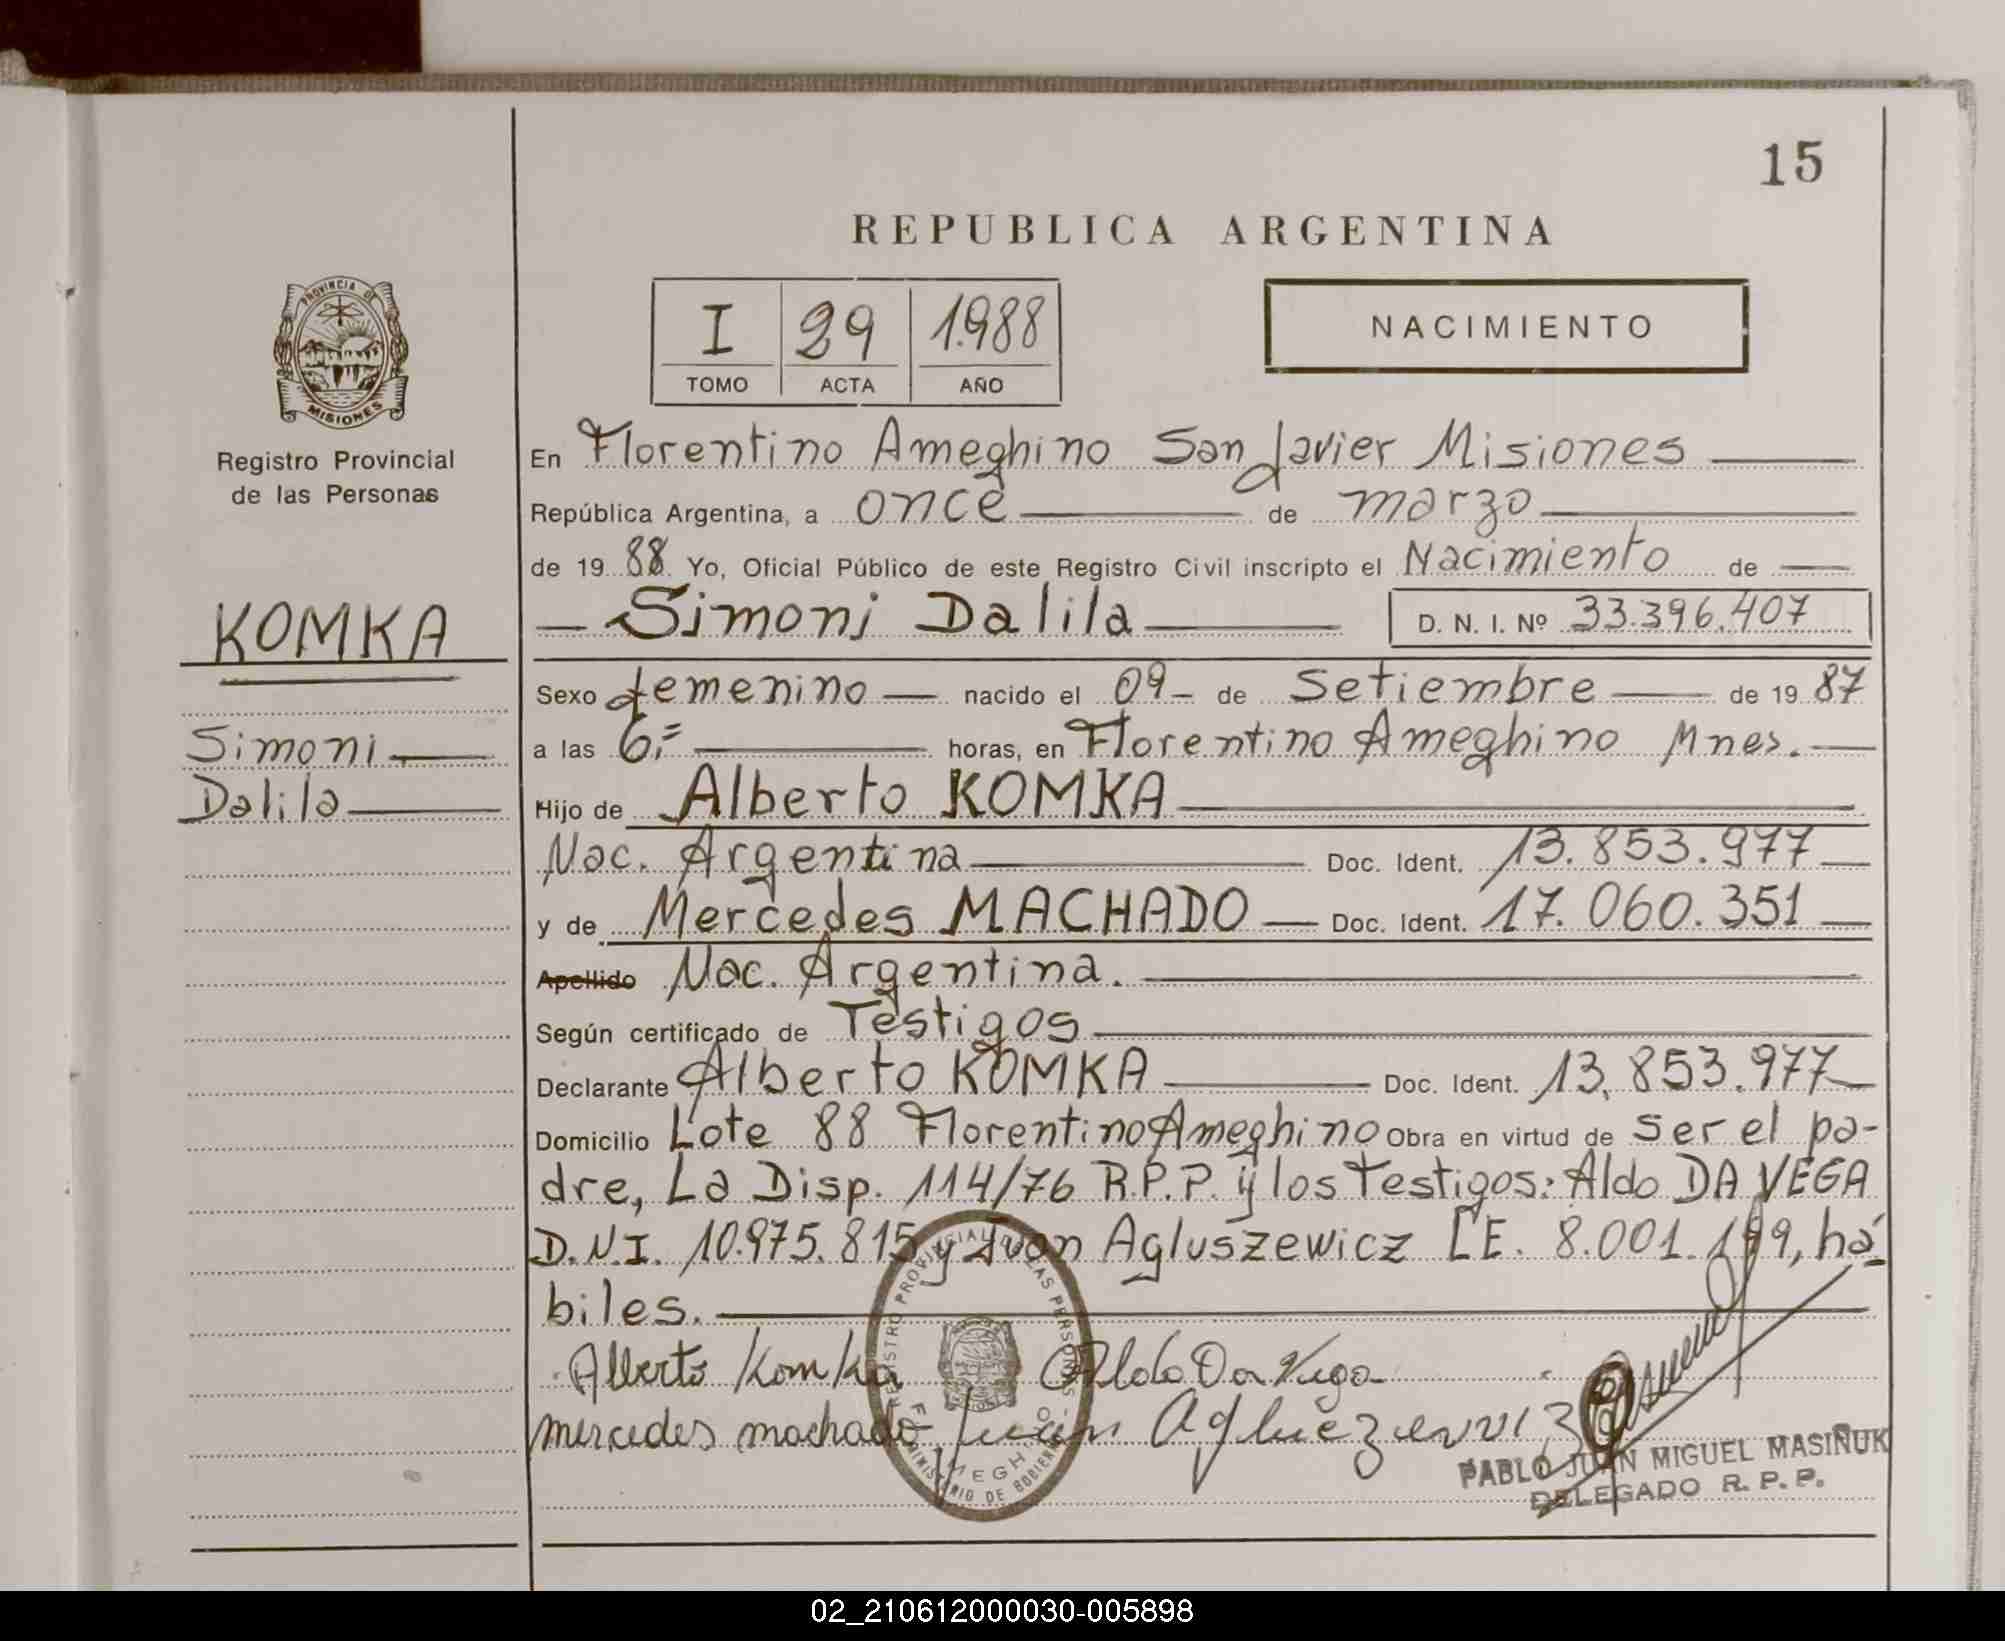 15
REPUBLICA ARGENTINA
I 29 1.988
TOMO ACTA AÑO
NACIMIENTO
PROVINCIA DE
MISIONES
Registro Provincial
de las Personas
KOMKA
Simoni
Dalila
En Florentino Ameghino San Javier Misiones
República Argentina, a once de marzo
de 19 88 Yo, Oficial Público de este Registro Civil inscripto el Nacimiento de
Simoni Dalila D. N. I. Nº 33.396.407
Sexo femenino nacido el 09 de Setiembre de 19 87
a las 6,= horas, en Florentino Ameghino Mnes.
Hijo de Alberto KOMKA
Nac. Argentina Doc. Ident. 13.853.977
y de Mercedes MACHADO Doc. Ident. 17.060.351
Apellido Nac. Argentina.
Según certificado de Testigos
Declarante Alberto KOMKA Doc. Ident. 13.853.977
Domicilio Lote 88 Florentino Ameghino Obra en virtud de ser el pa-
dre, La Disp. 114/76 R.P.P. y los Testigos: Aldo DA VEGA
D.N.I. 10.975.815 y Juan Agluszewicz L.E. 8.001.199, há-
biles.
Alberto Komka Aldo Da Vega
mercedes machado Juan
REGISTRO PROVINCIAL DE LAS PERSONAS
MINISTERIO DE GOBIERNO
PABLO JUAN MIGUEL MASIÑUK
DELEGADO R. P. P.
02_210612000030-005898